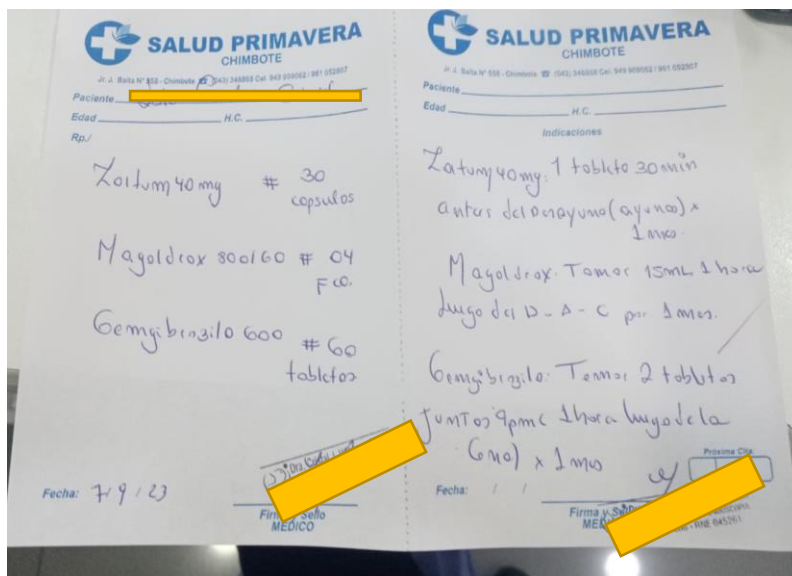 SALUD PRIMAVERA
CHIMBOTE
Jr. J. Balta N° 558 - Chimbote ☎ (043) 346958 Cel. 949 909052 / 981 052807
Paciente
Edad H.C.
Rp./
Zoltum 40 mg # 30
capsulas
Magaldrox 800/60 # 04
Fco.
Gemgibrozilo 600 # 60
tabletas
Fecha: 7/9/23
Firma y Sello
MEDICO
SALUD PRIMAVERA
CHIMBOTE
Jr. J. Balta N° 558 - Chimbote ☎ (043) 346958 Cel. 949 909052 / 981 052807
Paciente
Edad H.C.
Indicaciones
Zatum 40mg: 1 tableta 30 min
antes del Desayuno (ayunas) x
1 mes.
Magaldrox: Tomar 15mL 1 hora
luego del D - A - C por 1 mes.
Gemgibrozilo: Tomar 2 tabletas
juntas 9pm (1 hora luego de la
Cena) x 1 mes
Próxima Cita:
Fecha: / /
Firma y
RNE 045261